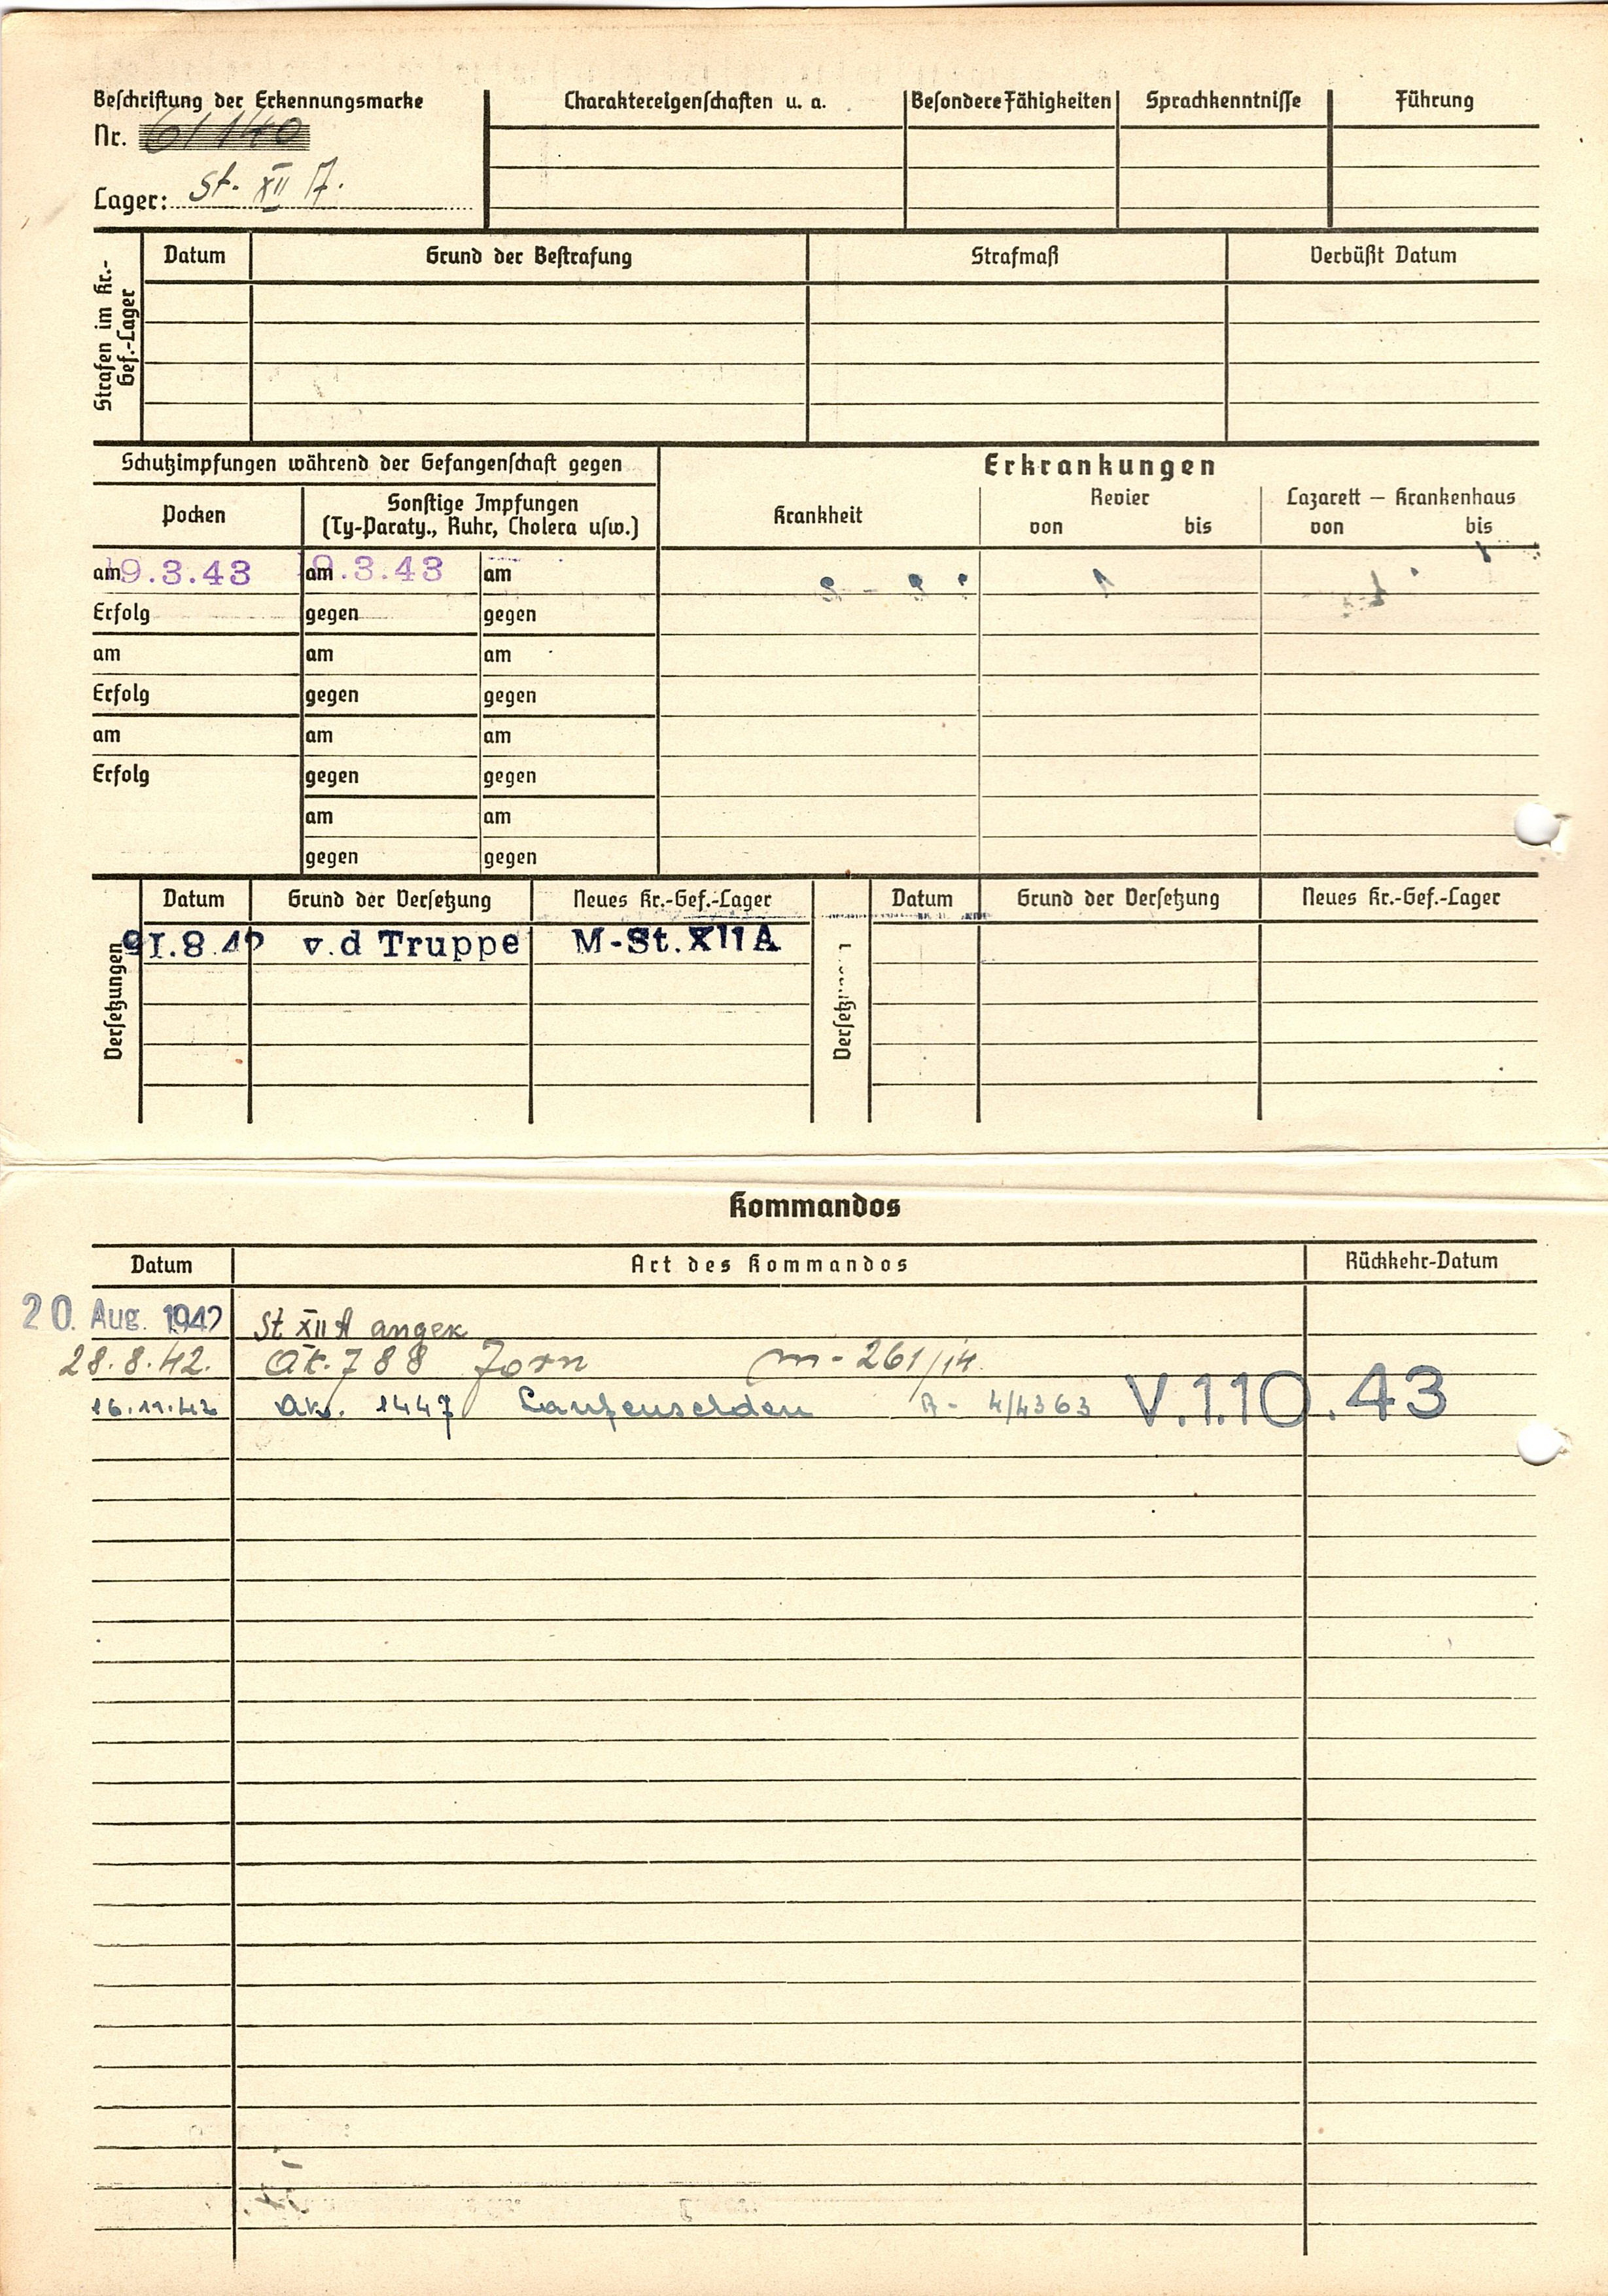 Beschriftung der Erkennungsmarke
Nr. 61140
Lager: St. XII A.
Charaktereigenschaften u. a.
Besondere Fähigkeiten
Sprachkenntnisse
Führung
Strafen im Kr.-
Gef.-Lager
Datum
Grund der Bestrafung
Strafmaß
Verbüßt Datum
Schutzimpfungen während der Gefangenschaft gegen
Pocken
Sonstige Impfungen
(Ty-Paraty., Ruhr, Cholera usw.)
Erkrankungen
Krankheit
Revier
von bis
Lazarett – Krankenhaus
von bis
am 19.3.43 am 19.3.43 am
Erfolg gegen gegen
am am am
Erfolg gegen gegen
am am am
Erfolg gegen gegen
am am
gegen gegen
Versetzungen
Datum Grund der Versetzung Neues Kr.-Gef.-Lager
v.d Truppe M-St.XIIA
Datum Grund der Versetzung Neues Kr.-Gef.-Lager
Kommandos
Datum Art des Kommandos Rückkehr-Datum
20. Aug. 1942 St XII A angek
28.8.42. Ak. 788 Jorn m-261/14.
16.11.42 Ak. 1447 Laufenselden A- 4/4363 V.1.10.43